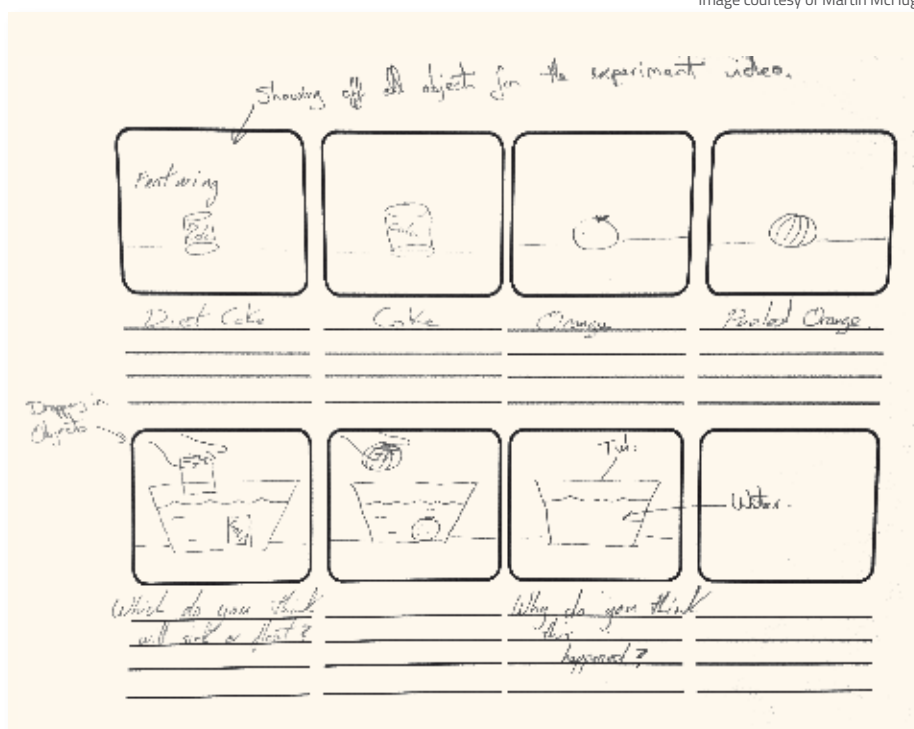 Image courtesy of Martin McHug
Showing off all objects for the experiment video.
Featuring
Diet Coke
Coke
Orange
Peeled Orange.
Dropping in
Objects
Tub.
Water.
Which do you think
will sink or float?
Why do you think
this
happened?